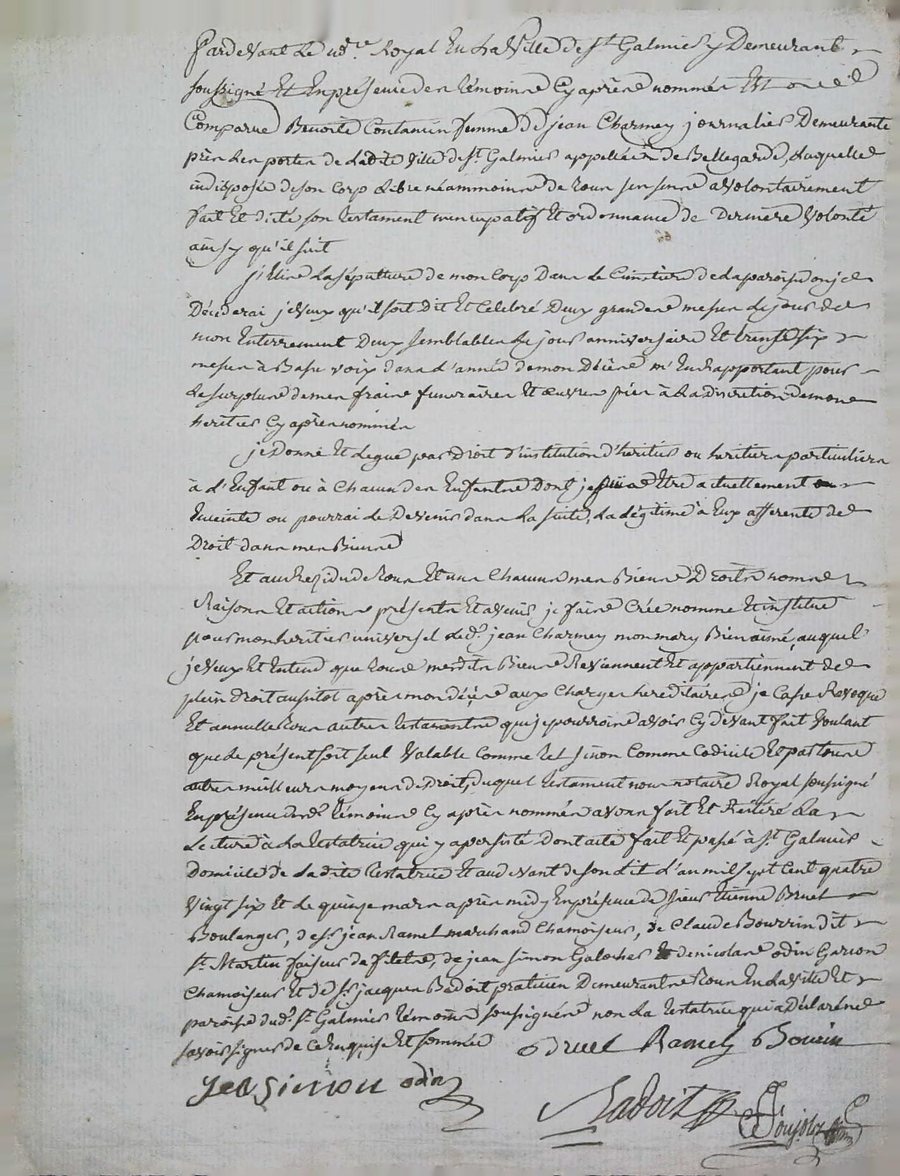 Pardevant Le no.re Royal En La Ville de St Galmier y Demeurant
soussigné Et En présence des témoins Cy après nommés Est
Comparue Benoite Contamin femme de jean Charmey journalier Demeurante
près les portes de Ladite Ville de St Galmier appellées de Bellegarde, Laquelle
indisposée de son Corp Libre néammoins de tous ses sens a volontairement
fait Et dicté son testament nuncupatif Et ordonnance de Dernière Volonté
ainsy qu'il suit
j'Elire La sépulture de mon Corp Dans Le Cimetière de La paroisse où je
Décéderai je veux qu'il soit Dit Et Celebré Deux grandes messes Le jour de
mon Enterrement Deux semblables Le jour anniversaire Et trente six
messes à Basse voix dans L'année de mon Décès m'En rapportant pour
Le surplus de mes frais funéraires Et œuvres pies à La discrétion de mon
heritier Cy après nommé
je Donne Et Legue par Droit d'institution d'heritier ou heritiers particuliers
à L'Enfant ou à Chacun des Enfants Dont je puis Etre actuellement
Enceinte ou pourrai Le Devenir dans La suite, La Légitime à Eux afferente de
Droit dans mes Biens
Et au Residu de tous Et uns Chacuns mes Biens Droits noms
Raisons Et actions présents Et avenir je fais Crée nomme Et institue
pour mon heritier universel Led. jean Charmey mon mary Bien aimé, auquel
je Veux Et Entend que tous mesdits Biens Reviennent Et appartiennent de
plein Droit aussitot après mon décès aux Charges hereditaires je Casse Revoque
Et annulle tous autres testaments que je pourrois avoir Cy devant fait Voulant
que Le présent soit seul Valable Comme tel sinon Comme Codicile Et par tous
autres meilleurs moyens de Droit, duquel testament nous notaire Royal soussigné
En présence desd. témoins Cy après nommés avons fait Et Réitéré La
Lecture à La testatrice qui y a persisté Dont acte fait Et passé à St Galmier
domicile de Ladite testatrice Et au devant de son Lit L'an mil sept Cent quatre
Vingt six Et Le quinze mars après midy En présence de sieur Etienne Bruel
Boulanger, de sr. jean Ramel marchand Chamoiseur, de Claude Bourrin dit
St. Martin faiseur de filets, de jean simon Galocher de nicolas odin Garson
Chamoiseur Et de sr. jacques Badoit praticien Demeurants tous En La Ville Et
paroisse dud. St. Galmier témoins soussignés non La testatrice qui a Déclaré ne
savoir signer de Ce Requise Et sommée
Bruel Ramel Bourin
Jean Simon odin
Badoit